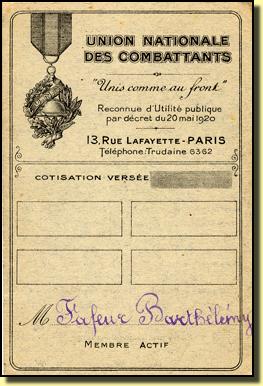 UNION NATIONALE
DES COMBATTANTS
"Unis comme au front"
Reconnue d'Utilité publique
par décret du 20 mai 1920
13, RUE LAFAYETTE - PARIS
Téléphone: Trudaine 6362
COTISATION VERSÉE
M Fafeur Barthélémy
MEMBRE ACTIF